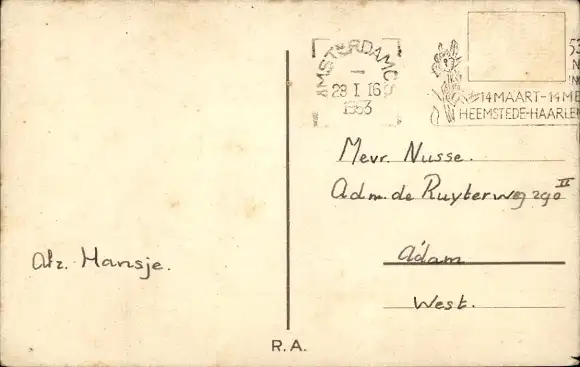 AMSTERDAM C.S.
28 I 16
1953
53
N
14 MAART-14 ME
HEEMSTEDE-HAARLEM
Mevr. Nusse.
Adm. de Ruyterweg 290 II
A'dam
West.
Afz. Hansje.
R.A.